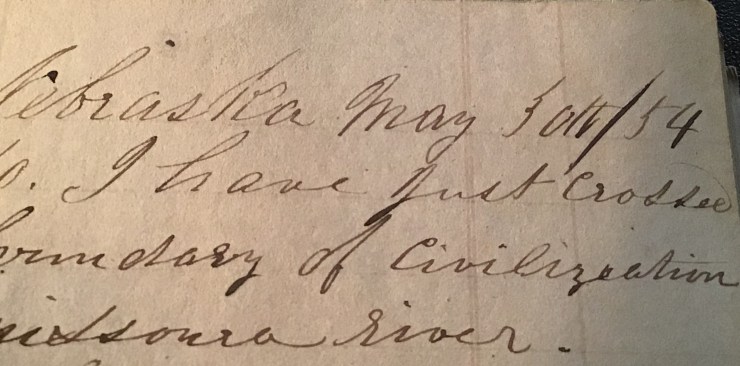 Nebraska May 30th/54
I have just crossed
boundary of Civilization
Missoura River.